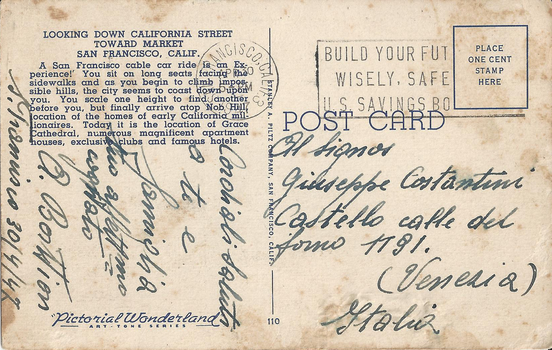 LOOKING DOWN CALIFORNIA STREET
TOWARD MARKET
SAN FRANCISCO, CALIF.
A San Francisco cable car ride is an Ex-
perience! You sit on long seats facing the
sidewalks and as you begin to climb impos-
sible hills, the city seems to coast down upon
you. You scale one height to find another
before you, but finally arrive atop Nob Hill,
location of the homes of early California mil-
lionaires. Today it is the location of Grace
Cathedral, numerous magnificent apartment
houses, exclusive clubs and famous hotels.
S. Francisco 30/4/47
Cordiali saluti
a te e
famiglia
tuo aff.mo
"Pictorial Wonderland"
ART-TONE SERIES
STANLEY A. PILTZ COMPANY, SAN FRANCISCO, CALIF.
110
BUILD YOUR FUT
WISELY, SAFE
U.S. SAVINGS BO
PLACE
ONE CENT
STAMP
HERE
POST CARD
Al Signor
Giuseppe Costantini
Castello calle del
forno 1791.
(Venezia)
Italia